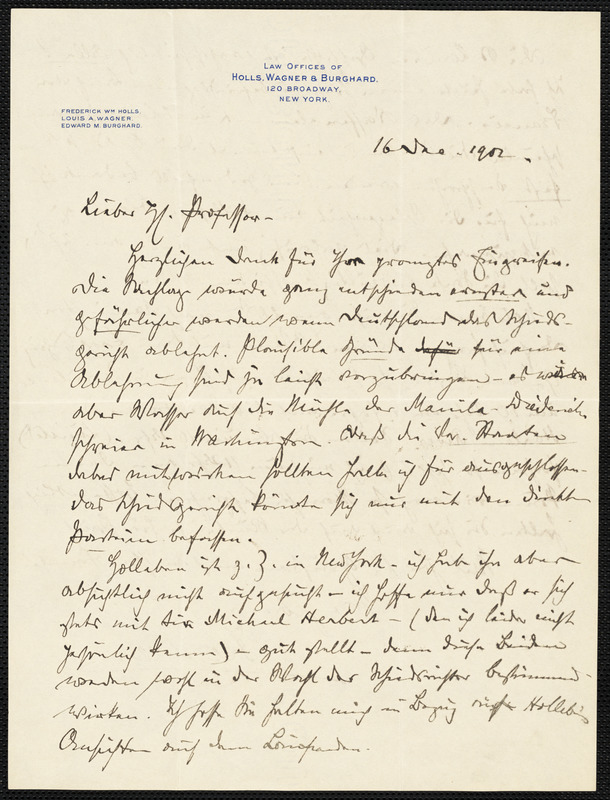 LAW OFFICES OF
HOLLS, WAGNER & BURGHARD.
120 BROADWAY,
NEW YORK.
FREDERICK WM HOLLS.
LOUIS A. WAGNER.
EDWARD M. BURGHARD.
16 Dec. 1902.
Lieber Hr. Professor –
Herzlichen Dank für Ihr promptes Eingreifen.
Die Sachlage würde ganz entschieden ernster und
gefährlicher werden wenn Deutschland das Schieds-
gericht ablehnt. Plausible Gründe dafür für eine
Ablehnung sind ja leicht vorzubringen – es wäre
aber Wasser auf die Mühle der Manila-Diederichs
Schreier in Washington. Daß die Ver. Staaten
dabei mitwirken sollten halte ich für ausgeschlossen –
das Schiedsgericht könnte sich nur mit den direkten
Parteien befassen.
Holleben ist z. Z. in New York – ich habe ihn aber
absichtlich nicht aufgesucht – ich hoffe nur daß er sich
stets mit Sir Michael Herbert – (den ich leider nicht
persönlich kenne) – gut stellt – denn diese Beiden
werden wohl in der Wahl der Schiedsrichter bestimmend
wirken. Ich hoffe Sie halten mich in Bezug auf Hollebens
Ansichten auf dem Laufenden.